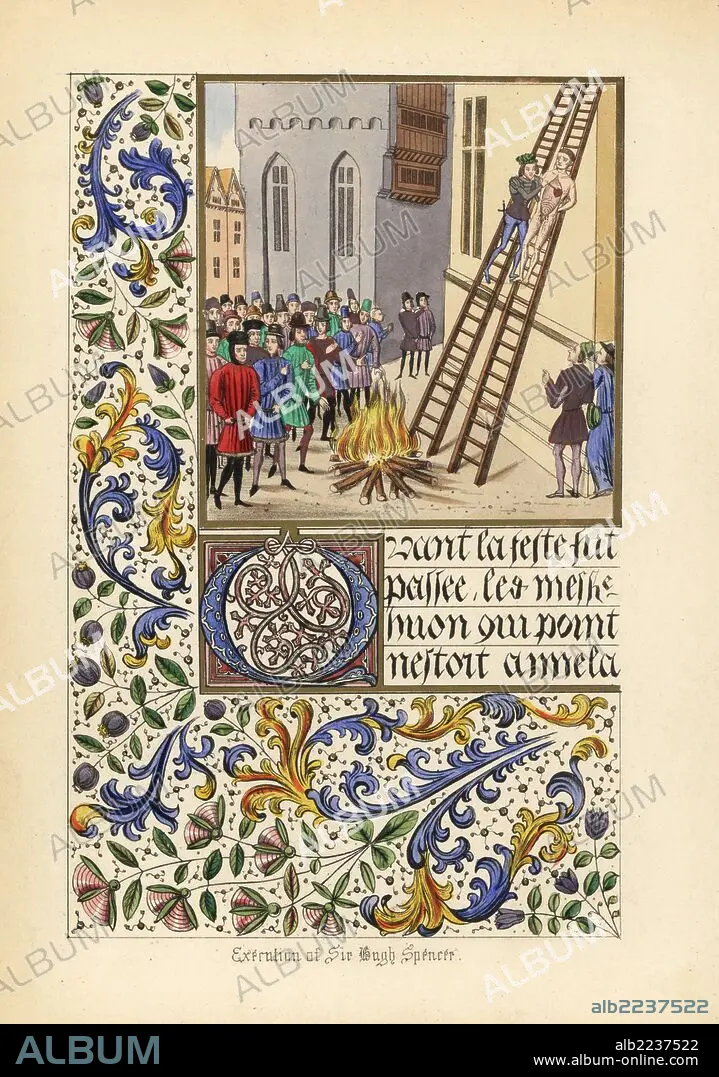 Quant la feste fut
passee, led messire
huon qui point
nestoit aimela
Execution of Sir Hugh Spencer.
alb2237522
ALBUM
alb2237522
www.album-online.com